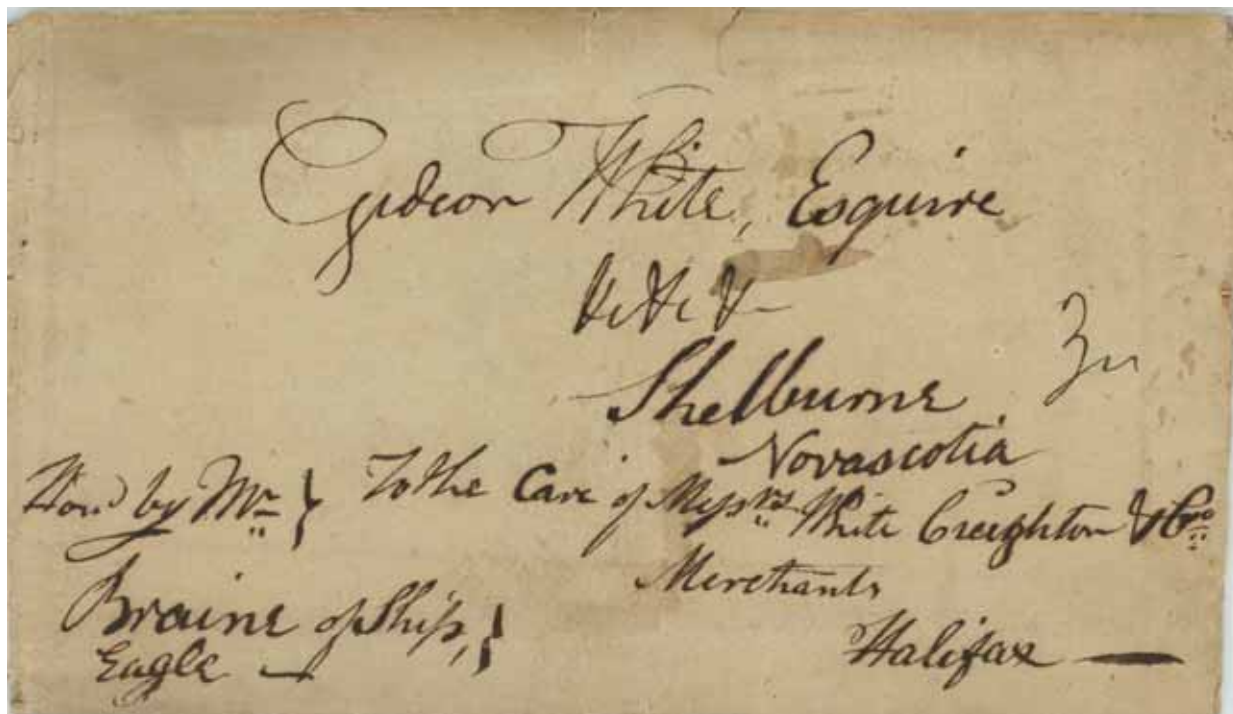 Gideon White, Esquire
&c &c &-
Shelburne
Novascotia
Hond by Mr } To the Care of Messrs White Creighton & Co
Merchants
Braine of Ship, }
Eagle — Halifax —